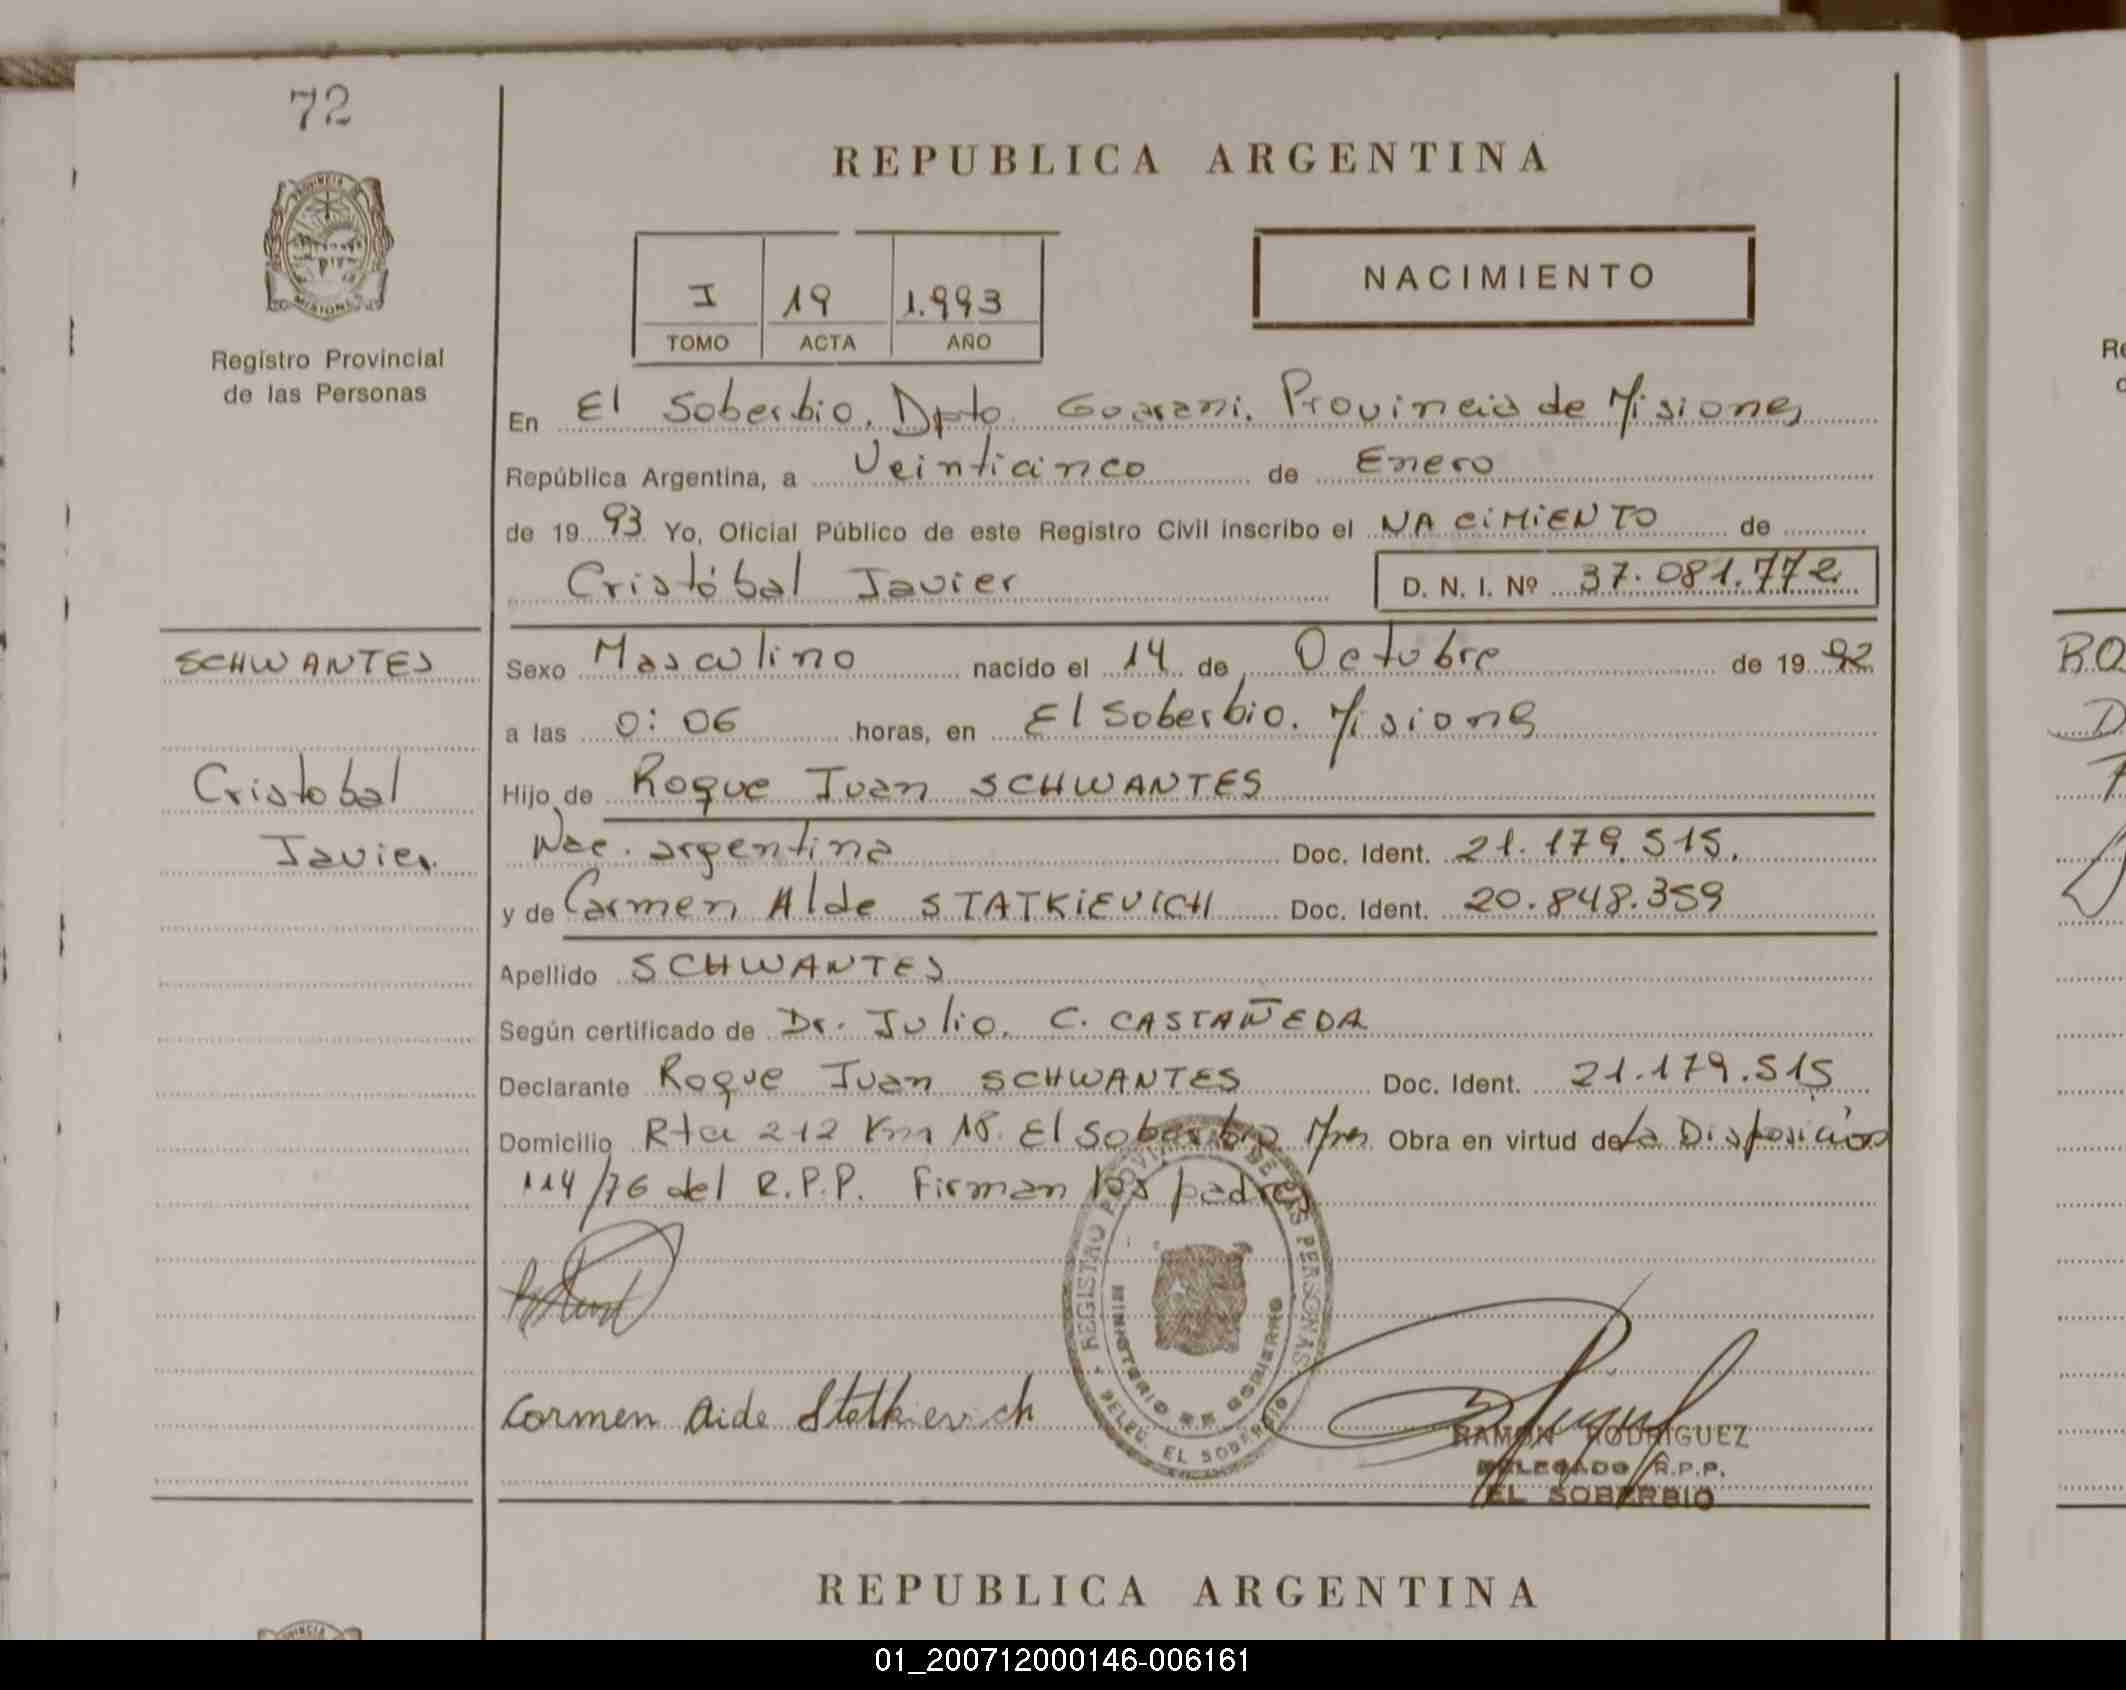 72
REPUBLICA ARGENTINA
PROVINCIA DE
MISIONES
Registro Provincial
de las Personas
I 19 1.993
TOMO ACTA AÑO
NACIMIENTO
En El Soberbio. Dpto. Guarani. Provincia de Misiones
República Argentina, a Veinticinco de Enero
de 1993 Yo, Oficial Público de este Registro Civil inscribo el NACIMIENTO de
Cristóbal Javier D. N. I. Nº 37.081.772
SCHWANTES
Cristobal
Javier.
Sexo Masculino nacido el 14 de Octubre de 1992
a las 0:06 horas, en El Soberbio. Misiones
Hijo de Roque Juan SCHWANTES
Nac. argentina Doc. Ident. 21.179.515.
y de Carmen Aide STATKIEVICH Doc. Ident. 20.848.359
Apellido SCHWANTES
Según certificado de Dr. Julio. C. CASTAÑEDA
Declarante Roque Juan SCHWANTES Doc. Ident. 21.179.515
Domicilio Rta 212 Km 18. El Soberbio Mnes Obra en virtud de La Disposición
114/76 del R.P.P. Firman los padres
REGISTRO PROVINCIAL DE LAS PERSONAS
MINISTERIO DE GOBIERNO
DELEG. EL SOBERBIO
Carmen Aide Statkievich
RAMON RODRIGUEZ
DELEGADO R.P.P.
EL SOBERBIO
REPUBLICA ARGENTINA
01_200712000146-006161